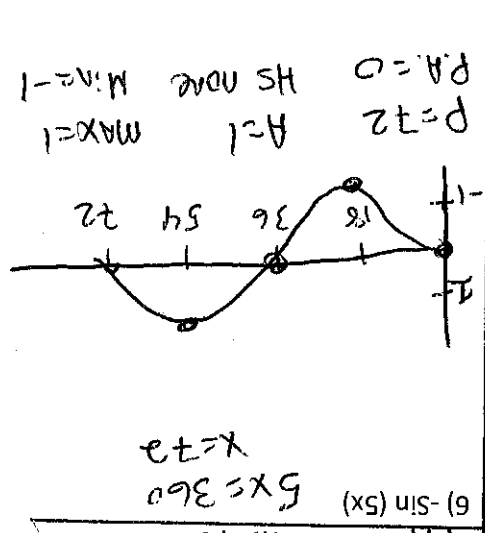 6) -Sin (5x) 5x = 360
x=72
1
18 36 54 72
-1
P=72 A=1 max=1
P.A.=0 HS none Min=-1